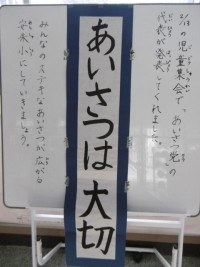 の児童集会で、あいさつ党の
代表が発表してくれました。
あいさつは大切
みんなのステキなあいさつが広がる
安来小にしていきましょう。